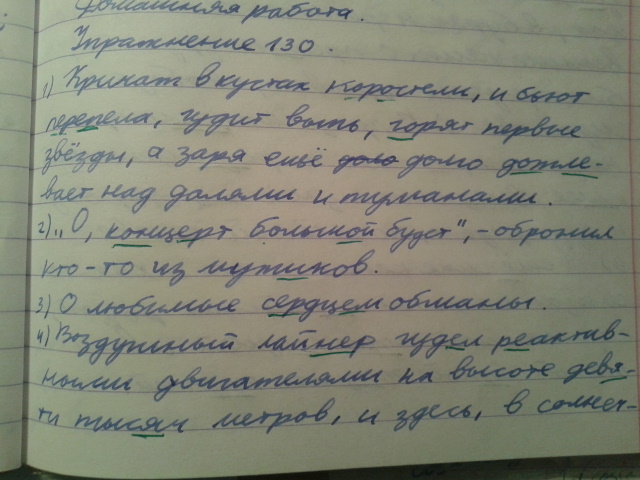 Домашняя работа.
Упражнение 130.
1) Кричат в кустах коростели, и бьют
перепела, гудит выпь, горят первые
звёзды, а заря ещё доло долго дотле-
вает над далями и туманами.
2) „О, концерт большой будет", - обронил
кто-то из мужиков.
3) О любимые сердцем обманы.
4) Воздушный лайнер гудел реактив-
ными двигателями на высоте девя-
ти тысяч метров, и здесь, в солнеч-